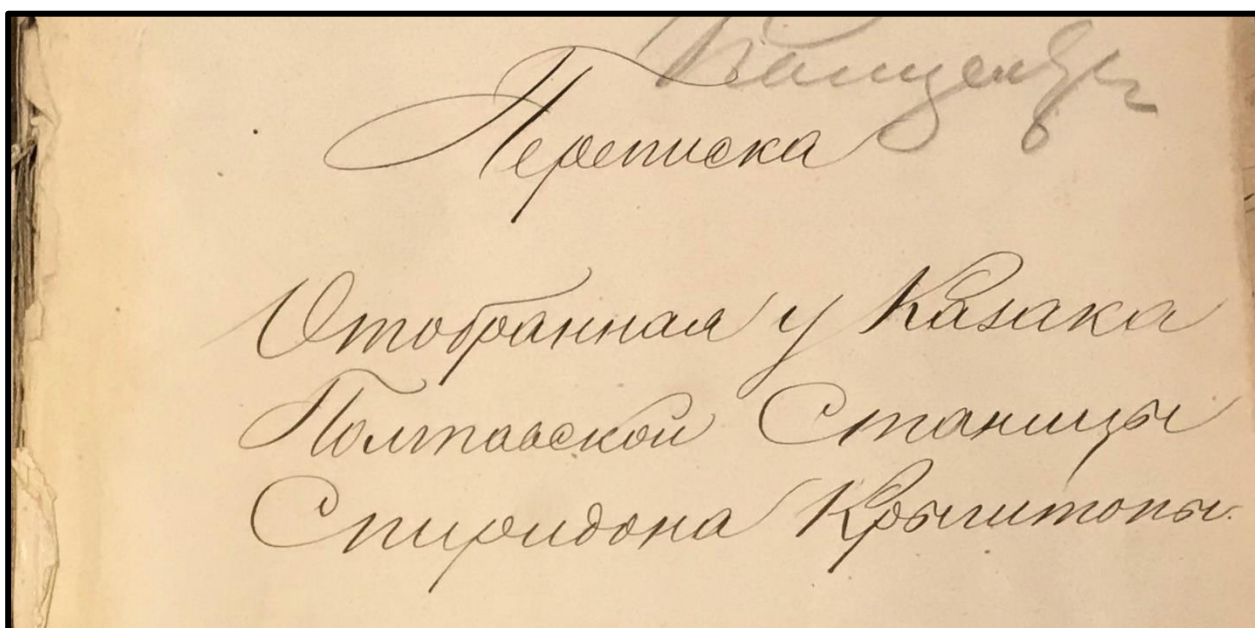 Переписка
Отобранная у Казака
Полтавской Станицы
Спиридона Крыштопы.